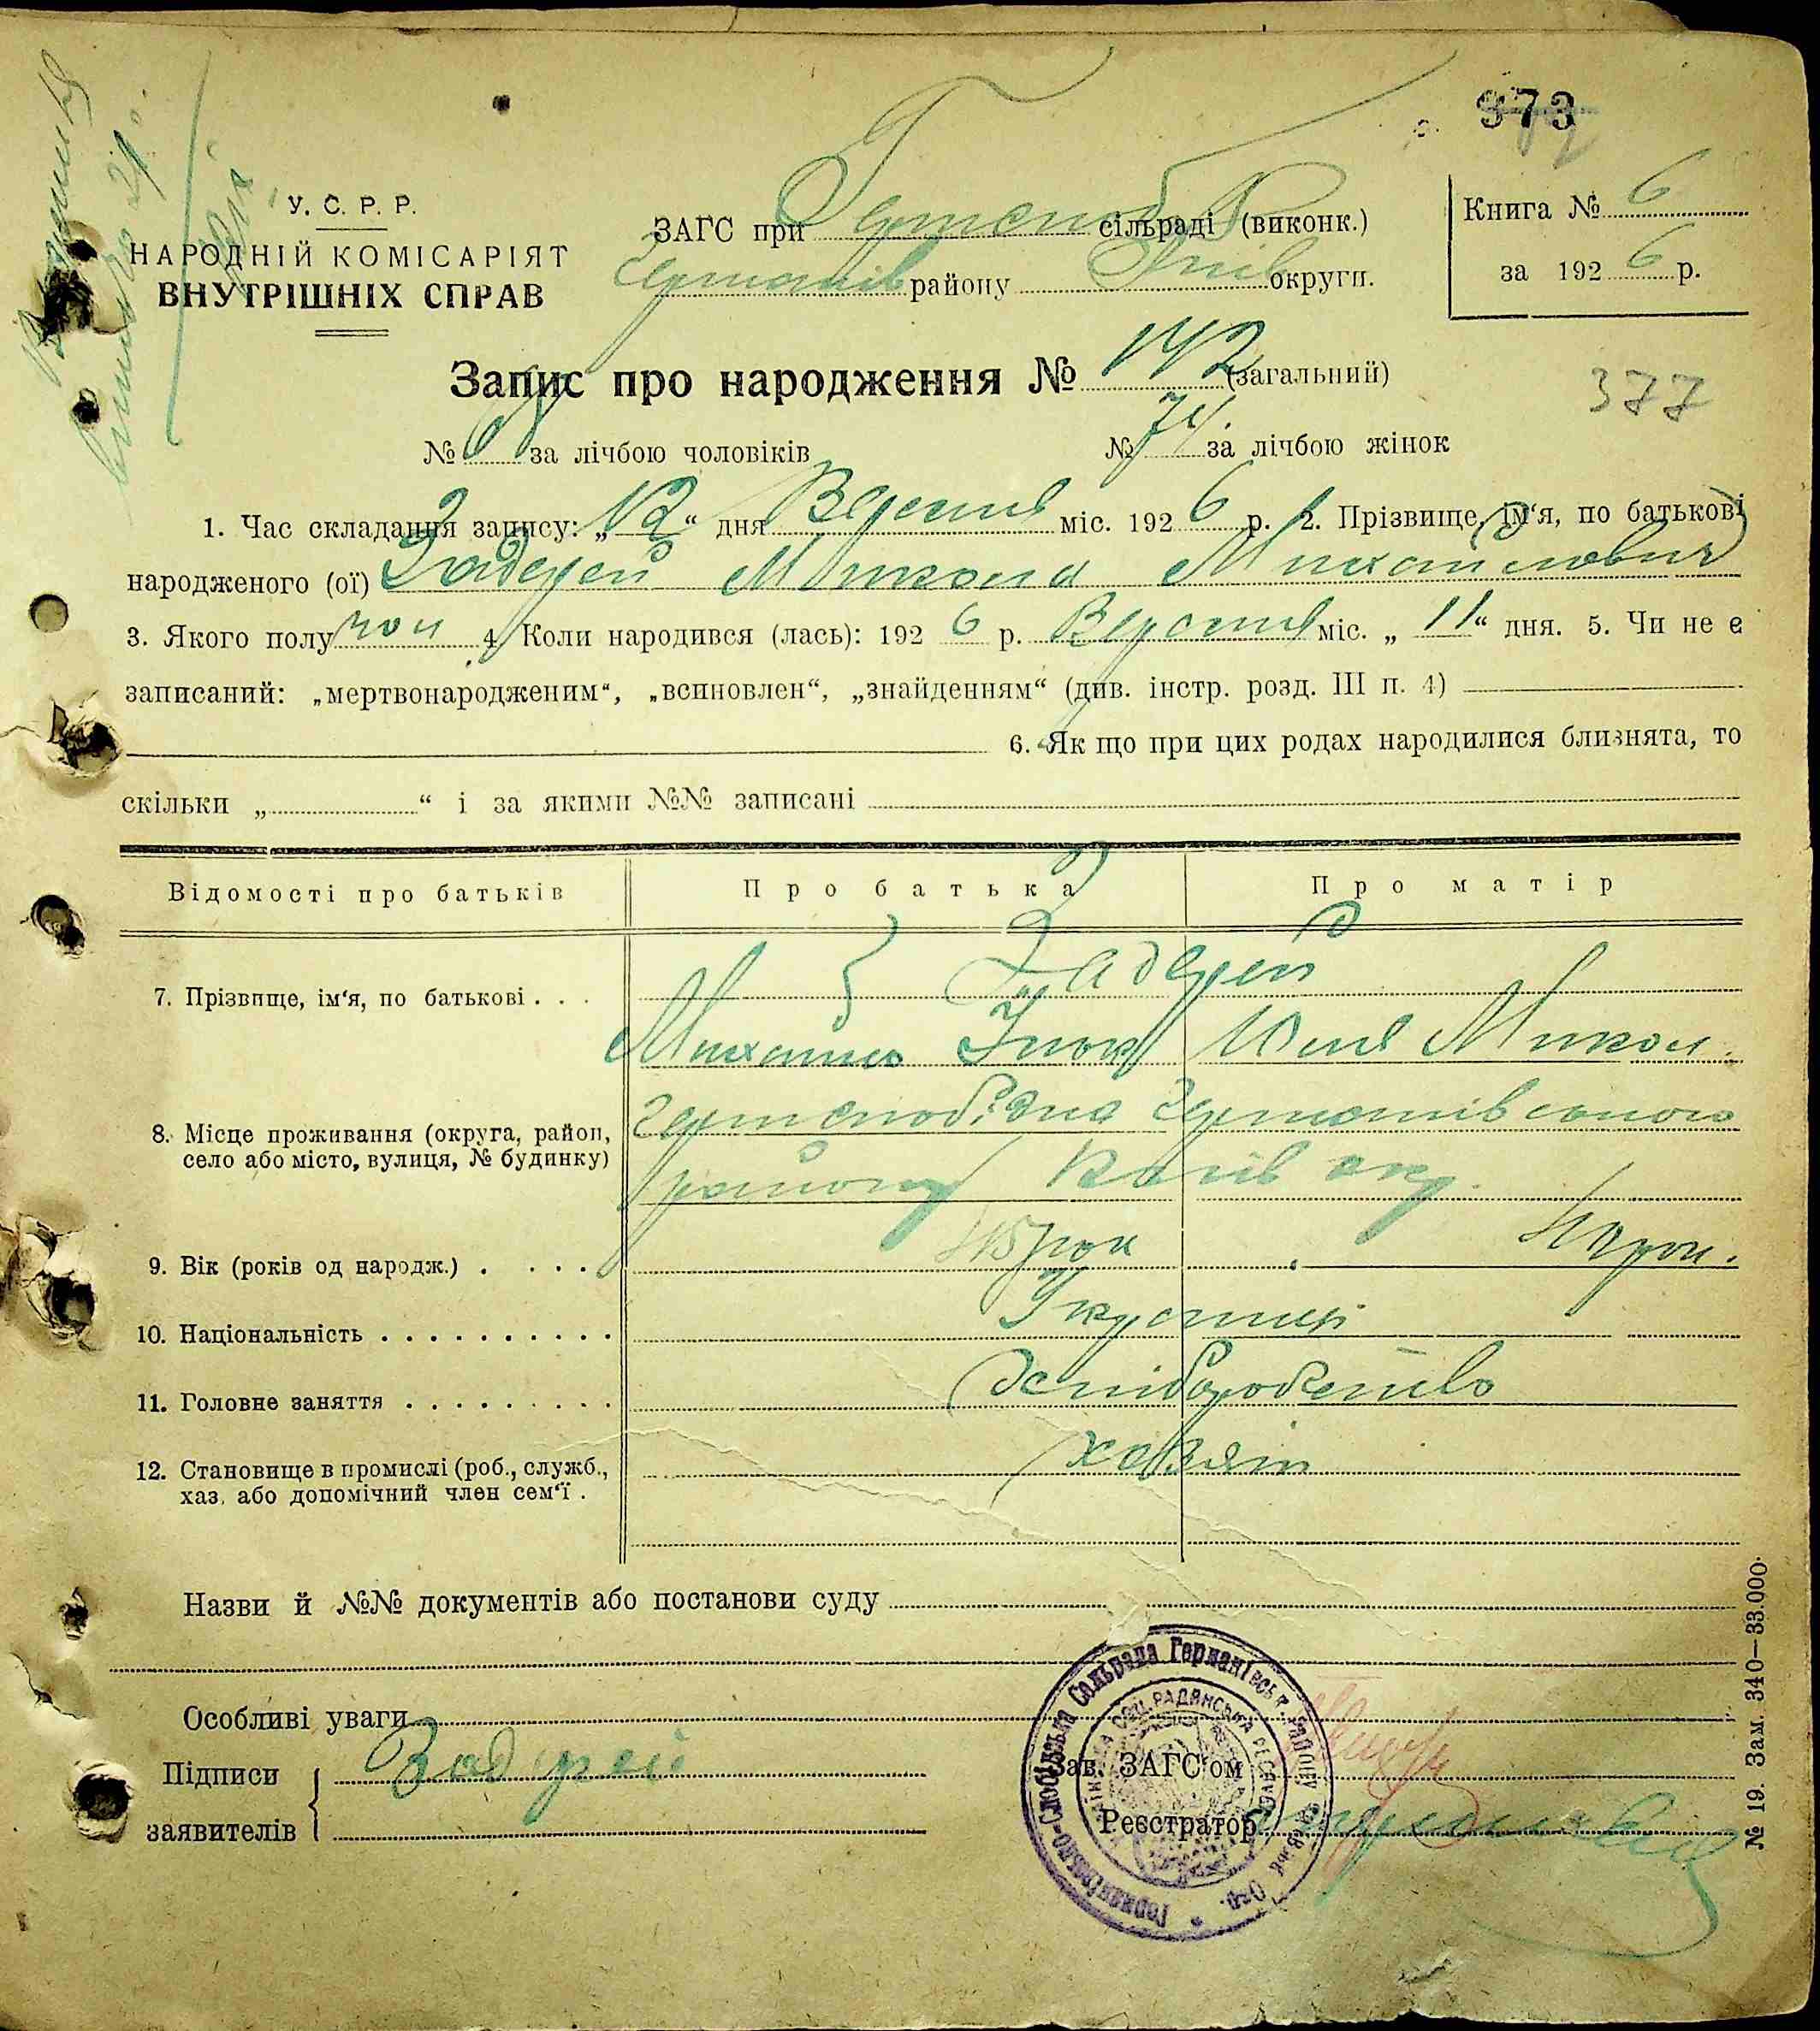 373
У. С. Р. Р.
НАРОДНІЙ КОМІСАРІЯТ
ВНУТРІШНІХ СПРАВ
ЗАГС при сільраді (виконк.)
району округи.
Книга № 6
за 192 6 р.
Запис про народження № 142 (загальний)
377
№ за лічбою чоловіків № 74 за лічбою жінок
1. Час складання запису: „12“ дня Вересня міс. 192 6 р. 2. Прізвище, ім‘я, по батькові
народженого (ої) Задерей Микола Михайлович
3. Якого полу чол 4. Коли народився (лась): 192 6 р. Вересня міс. „ 11“ дня. 5. Чи не є
записаний: „мертвонародженим“, „всиновлен“, „знайденням“ (див. інстр. розд. III п. 4)
6. Як що при цих родах народилися близнята, то
скільки „ “ і за якими №№ записані
Відомості про батьків Про батька Про матір
7. Прізвище, ім‘я, по батькові . . . Задерей
Михайло Юлія Микол.
8. Місце проживання (округа, район,
село або місто, вулиця, № будинку)
району Київ окр.
9. Вік (років од народж.) . . . . . 45 рок рок.
10. Національність . . . . . . . . . .
11. Головне заняття . . . . . . . . . хліборобство
12. Становище в промислі (роб., служб.,
хаз. або допомічний член сем‘ї . хазяїн
Назви й №№ документів або постанови суду
Особливі уваги
Підписи Задерей
заявителів
Зав. ЗАГС‘ом
Реєстратор
Германівсько-Слобідська Сельрада Германівськ. району Київськ. Окр.
№ 19. Зам. 340—33.000